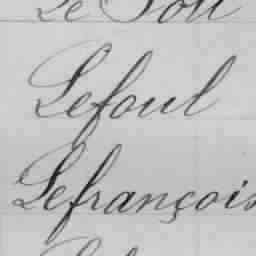 Le Foll
Lefoul
Lefrançois